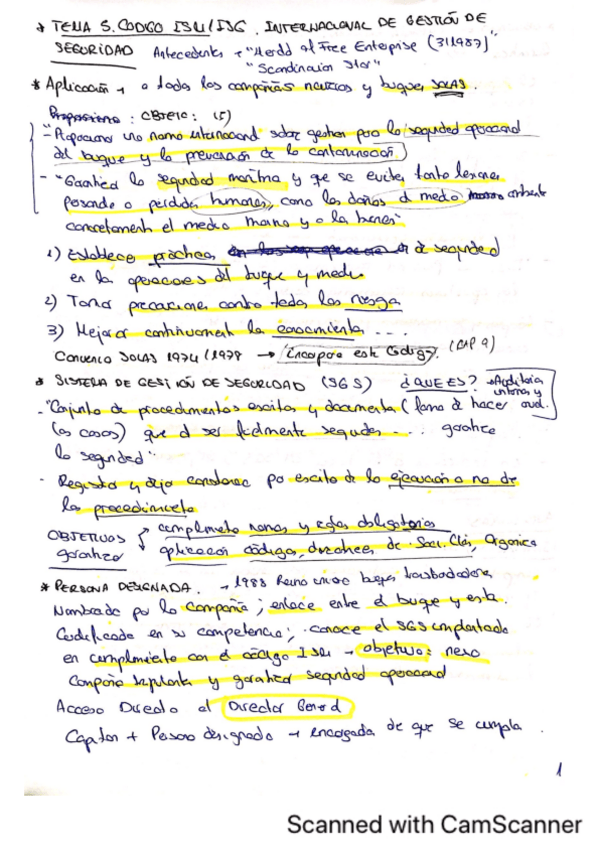 * TEMA 5. CODIGO ISM/ISG. INTERNACIONAL DE GESTIÓN DE
SEGURIDAD Antecedentes → "Herald of Free Enterprise (3/1987)"
"Scandinavian Star"
* Aplicación → a todas las compañías navieras y buques SOLAS.
: OBJETIC: (5)
- "Proporcionar una norma internacional sobre gestión para la seguridad operacional
del buque y la prevención de la contaminación
- "Garantizar la seguridad marítima y que se eviten tanto lesiones
personales o pérdidas humanas, como los daños al medio ambiente
concretamente el medio marino y a los bienes"
1) Establecer prácticas de seguridad
en las operaciones del buque y medio
2) Tomar precauciones contra todos los riesgos
3) Mejorar continuamente los conocimientos ....
CONVENIO SOLAS 1974/1978 → Incorpora este Código. (CAP 9)
* SISTEMA DE GESTIÓN DE SEGURIDAD (SGS) ¿QUE ES? → Auditorías internas y aud.
- "Conjunto de procedimientos escritos y documentados (forma de hacer
las cosas) que al ser fácilmente seguidos .... garantice
la seguridad"
- Registra y deja constancia por escrito de la ejecución o no de
los procedimientos
OBJETIVOS cumplimiento normas y reglas obligatorias
garantizar aplicación códigos, directrices, de Soc. Clas, Organizac
* PERSONA DESIGNADA. → 1988 Reino Unido buques transbordadores
Nombrada por la Compañía; enlace entre el buque y esta.
Cualificada en su competencia; conoce el SGS implantado
en cumplimiento con el código ISM → objetivo: nexo
Compañía implanta y garantiza seguridad operacional
Acceso Directo al Director General
Capitán + Persona designada → encargada de que se cumpla.
1
Scanned with CamScanner